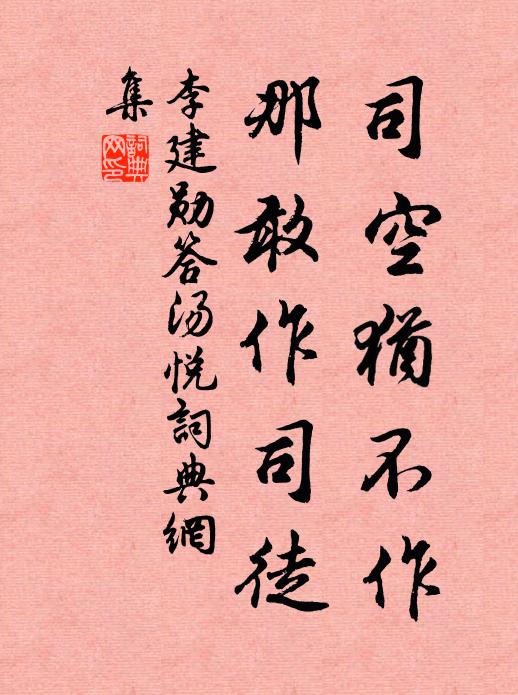 司空猶不作
那敢作司徒
李建勋答汤悦詞典網
集
詞典
网印